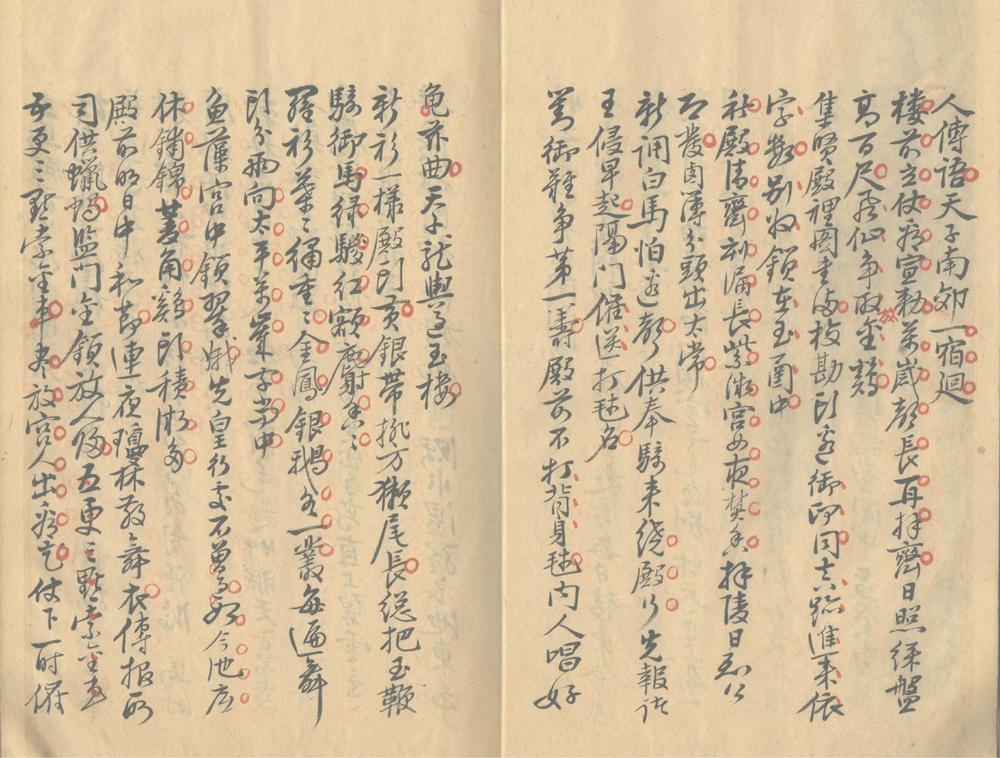 人傳語天子南郊一宿迴
樓前立仗看宣勅萬歲聲長再拜齊日照綵盤
高百尺飛仙争取金雞
集賢殿裡圖書滿校勘頭邊御印同真跡進来依
字數别收鎖在玉函中
秋殿清齋刻漏長紫微宫女夜焚香拜陵日到公
卿發鹵簿分頭出太常
新調白馬怕邊聲供奉騎来繞殿行先報諸
王侵早起隔門催送打毬名
對御難争第一籌殿前不打背身毬内人唱好
龜茲曲天子龍輿過玉樓
新衫一樣殿頭黄銀帶排方獺尾長總把玉鞭
騎御馬緑鬃紅額麝香〻
羅衫葉〻繡重〻金鳳銀鵝各一叢每遍舞
頭分兩向太平萬歲字當中
魚藻宫中鎖翠娥先皇行處不曾過如今池底
休鋪錦菱角雞頭積漸多
殿前明日中和節連夜瓊林散舞衣傳報所
司供蠟燭監門金鎖放人歸五更三點索金車
五更三點索金車盡放宫人出看花仗下一時催